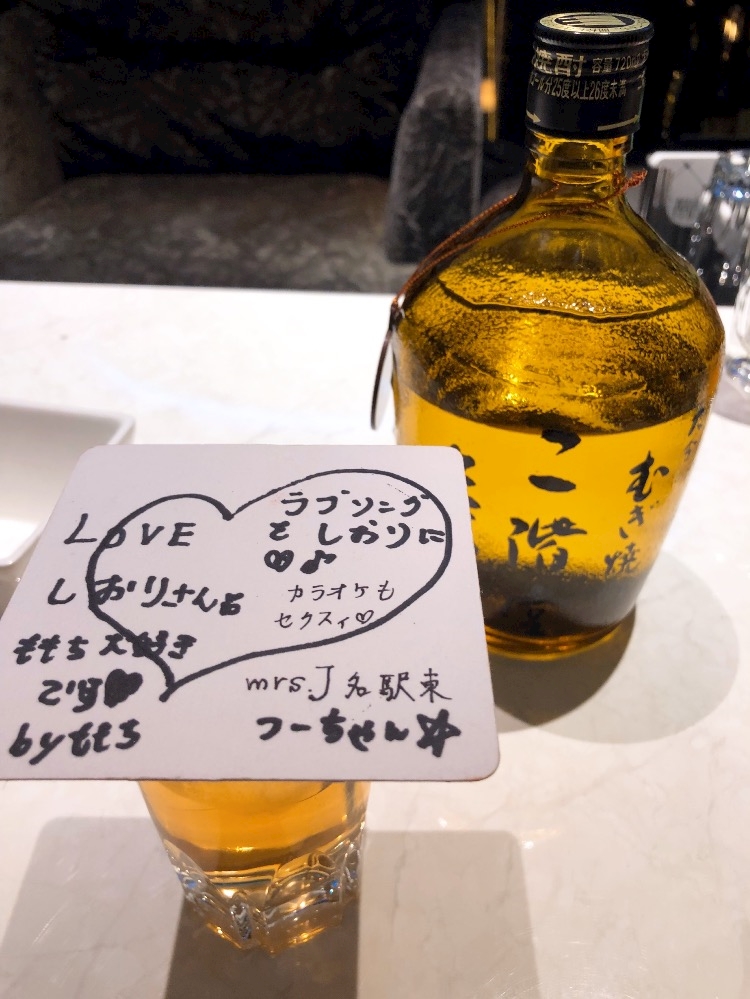 酎 容量720ml
アルコール分25度以上26度未満
二階
むぎ焼
LOVE
しおりさんも
ももち大好き
です♥
byももち
ラブソング
をしおりに
♡♪
カラオケも
セクスィ♡
mrs.J 名駅東
つーちゃん☆